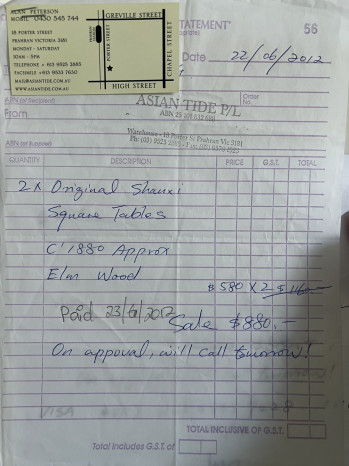 ALAN PETERSON
MOBIL 0430 543 744
18 PORTER STREET
PRAHRAN VICTORIA 3181
MONDAY - SATURDAY
10AM - 5PM
TELEPHONE + 613 9525 2685
MAIL@ASIANTIDE.COM.AU
WWW.ASIANTIDE.COM.AU
GREVILLE STREET
PORTER STREET
CHAPEL STREET
HIGH STREET
TATEMENT
56
Date 22/06/2012
Order No.
ABN (of Recipient)
ASIAN TIDE P/L
From
Warehouse - 18 Porter St Prahran Vic 3181
ABN (of Supplier)
QUANTITY DESCRIPTION PRICE G.S.T. TOTAL
2 x Original Shanxi
Square Tables
C'1880 Approx
Elm Wood
$580 x 2
Paid 23/6/2012
Sale $880.-
On appoval, will call tomorrow!
VISA
TOTAL INCLUSIVE OF G.S.T.
Total Includes G.S.T. of